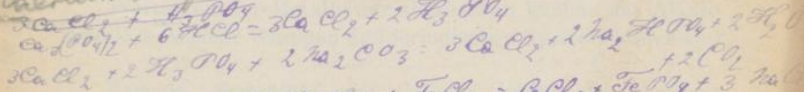 3CaCl2 + H3PO4
Ca3(PO4)2 + 6HCl = 3CaCl2 + 2H3PO4
3CaCl2 + 2H3PO4 + 2Na2CO3 = 3CaCl2 + 2Na2HPO4 + 2H2O
+ 2CO2
FePO4 + 3Na